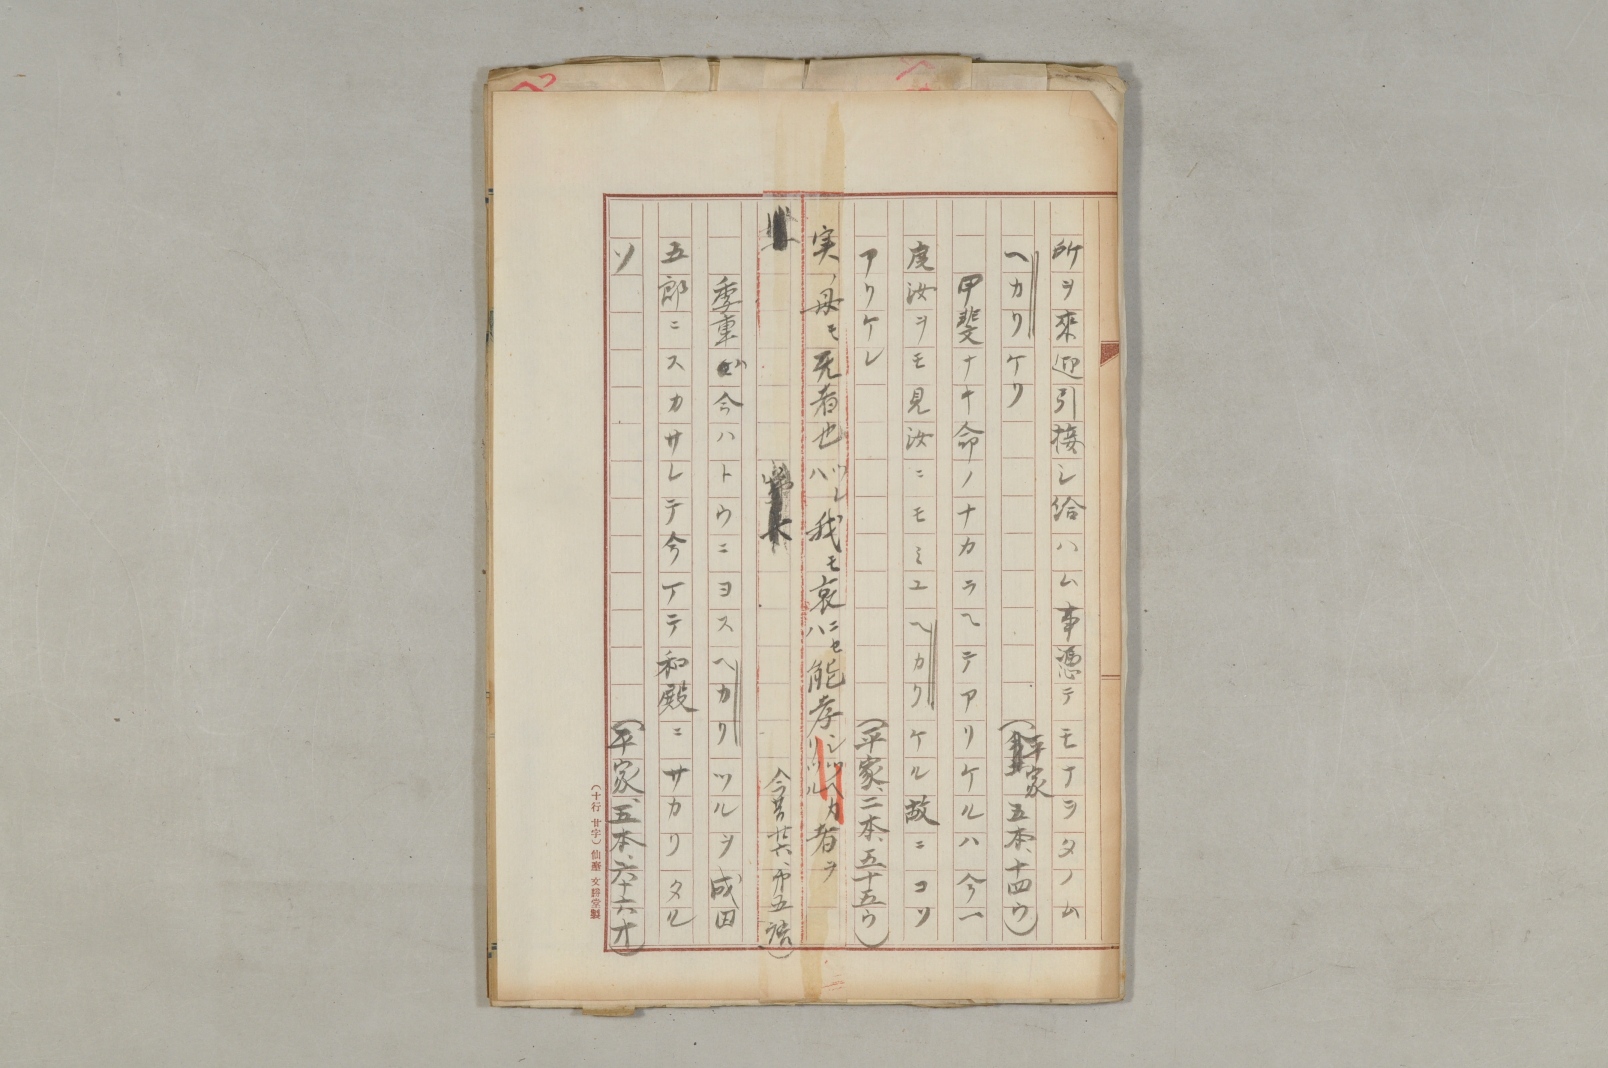 所ヲ來迎引接シ給ハム事憑テモナヲタノム
ヘカリケリ
(平家五本、十四ウ)
甲斐ナキ命ノナカラヘテアリケルハ今一
度汝ヲモ見汝ニモミユヘカリケル故ニコソ
アリケレ
(平家、二本、五十五ウ)
実ノ母モ死者也ツレハ我モ哀ニセハ能孝シツヘカリツル者ヲ
今昔廿六、第五語)
季重
今ハトウニヨスヘカリツルヲ成田
五郎ニスカサレテ今マテ和殿ニサカリタル
ソ
(平家、五本、六十六オ)
(十行 廿字) 仙臺 文錦堂製